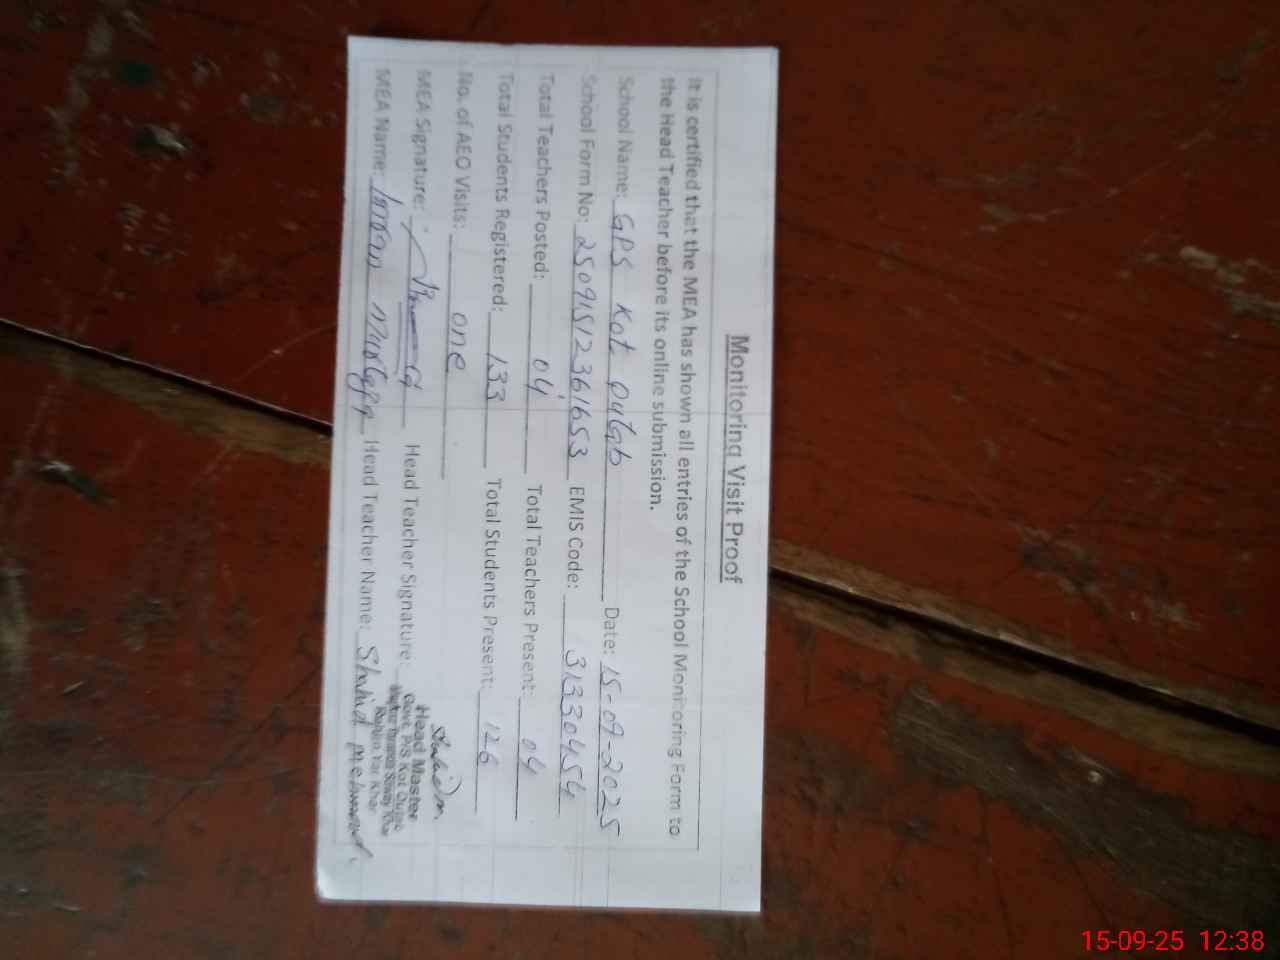 Monitoring Visit Proof
It is certified that the MEA has shown all entries of the School Monitoring Form to
the Head Teacher before its online submission.
School Name: GPS Kot Qutab Date: 15-09-2025
School Form No: 25091512361653 EMIS Code: 31330454
Total Teachers Posted: 04 Total Teachers Present: 04
Total Students Registered: 133 Total Students Present: 126
No. of AEO Visits: one
MEA Signature: Head Teacher Signature:
Head Master
Govt. P/S Kot Qutab
Rahim Yar Khan
MEA Name: Imran Mustafa Head Teacher Name: Shahid Mehmood
15-09-25 12:38